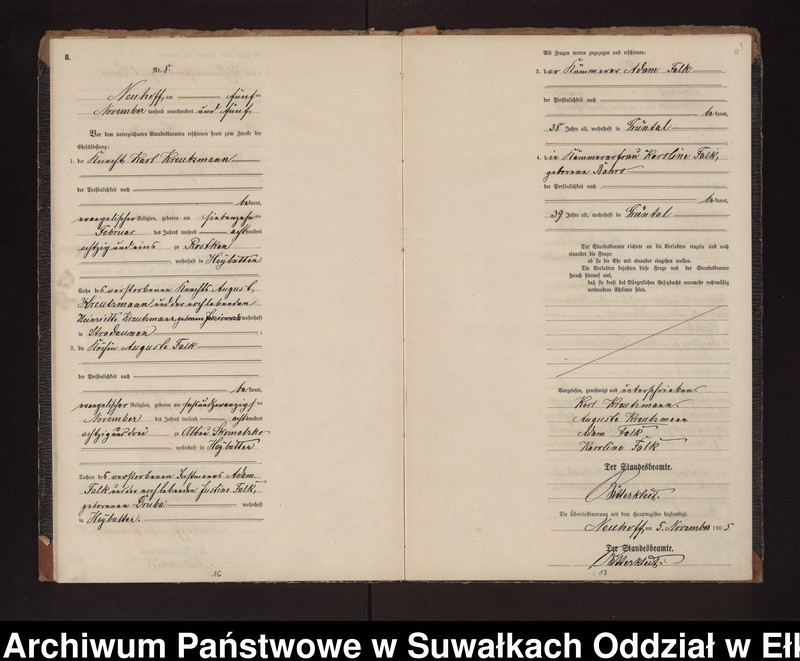 B.
Nr. 8.
Neuhoff, am fünf
November tausend neunhundert und fünf
Vor dem unterzeichneten Standesbeamten erschienen heute zum Zwecke der
Eheschließung:
1. der Knecht Karl Kreutzmann
der Persönlichkeit nach
be kannt,
evangelischer Religion, geboren am siebenzehn
Februar des Jahres tausend acht hundert
achtzig und eins zu Rostken
, wohnhaft in Heybutten
Sohn des verstorbenen Knechts August
Kreutzmann und der noch lebenden
Henriette Kreutzmann, geborenen wohnhaft
in Stradaunen ;
2. die Köchin Auguste Falk
der Persönlichkeit nach
be kannt,
evangelischer Religion, geboren am sechsundzwanzig
November des Jahres tausend acht hundert
achtzig und drei zu Abbau Skomatzko
, wohnhaft in Heybutten
Tochter des verstorbenen Instmanns Adam
Falk und der noch lebenden Justine Falk,
geborenen Druba wohnhaft
in Heybutten.
16
Als Zeugen waren zugezogen und erschienen:
3. der Kämmerer Adam Falk
der Persönlichkeit nach
be kannt,
38 Jahre alt, wohnhaft in Grüntal
4. die Kämmererfrau Karoline Falk,
geborene Bahro
der Persönlichkeit nach
be kannt,
39 Jahre alt, wohnhaft in Grüntal
Der Standesbeamte richtete an die Verlobten einzeln und nach
einander die Frage:
ob sie die Ehe mit einander eingehen wollen.
Die Verlobten bejahten diese Frage und der Standesbeamte
sprach hierauf aus,
daß sie kraft des Bürgerlichen Gesetzbuchs nunmehr rechtmäßig
verbundene Eheleute seien.
Vorgelesen, genehmigt und unterschrieben
Karl Kreutzmann.
Auguste Kreutzmann
Adam Falk
Karoline Falk
Der Standesbeamte.
Die Übereinstimmung mit dem Hauptregister beglaubigt.
Neuhoff, am 5. November 1905
Der Standesbeamte.
17
Archiwum Państwowe w Suwałkach Oddział w Ełk